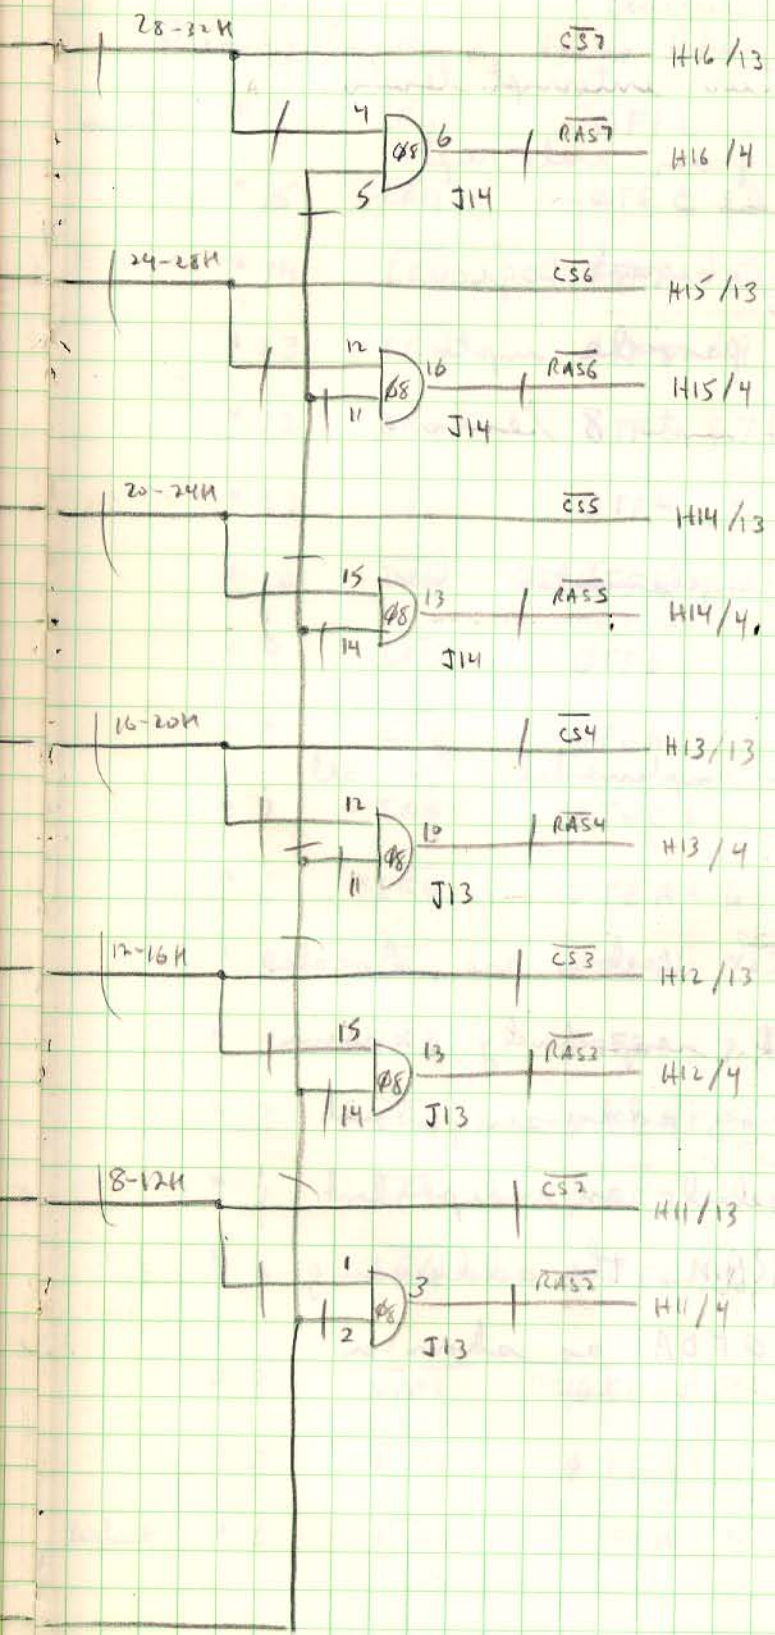 28-32H C̅S̅7̅ H16/13
4 Ø8 6 R̅A̅S̅7̅ H16/4
5 J14
24-28H C̅S̅6̅ H15/13
12 Ø8 10 R̅A̅S̅6̅ H15/4
11 J14
20-24H C̅S̅5̅ H14/13
15 Ø8 13 R̅A̅S̅5̅ H14/4
14 J14
16-20H C̅S̅4̅ H13/13
12 Ø8 10 R̅A̅S̅4̅ H13/4
11 J13
12-16H C̅S̅3̅ H12/13
15 Ø8 13 R̅A̅S̅3̅ H12/4
14 J13
8-12H C̅S̅2̅ H11/13
1 Ø8 3 R̅A̅S̅2̅ H11/4
2 J13